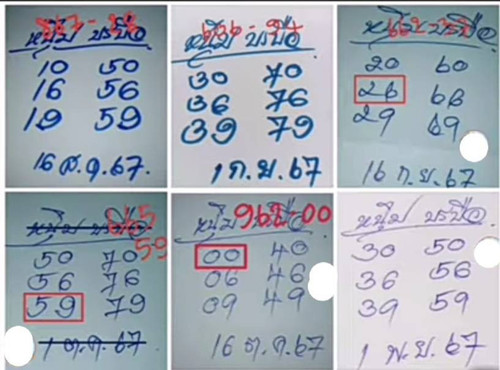 หนุ่ม บรบือ
10 50
16 56
19 59
16 ส.ค.67.
หนุ่ม บรบือ
30 70
36 76
39 79
1 ก.ย.67
หนุ่ม บรบือ
20 60
26 66
29 69
16 ก.ย.67
หนุ่ม บรบือ
59
50 70
56 76
59 79
1 ต.ค.67
หนุ่ม บรบือ
00
00 40
06 46
09 49
16 ต.ค.67
หนุ่ม บรบือ
30 50
36 56
39 59
1 พ.ย.67